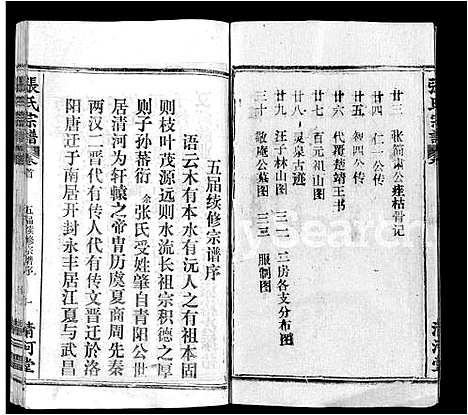 張氏宗譜
廿三 张简肃公瘗枯骨记
廿四 仁一公传
廿五 智四公传
廿六 代祭楚靖王文
廿七 百元祖山图
廿八 灵泉古迹
廿九 汪子林山图 三一 二房各支分布图
三十 敬庵公墓图 三二 服制图
清河堂
五届续修宗谱序
语云木有本水有沅人之有祖本固
则枝叶茂源远则水流长祖宗积德之厚
则子孙蕃衍余张氏受姓肇自青阳公世
居清河为轩辕之帝胄历虞夏商周先秦
两汉二晋代有传人代有传文晋迁於洛
阳唐迁于南居开封永丰居江夏与武昌
張氏宗譜 卷首
五届续修宗谱序
一
清河堂